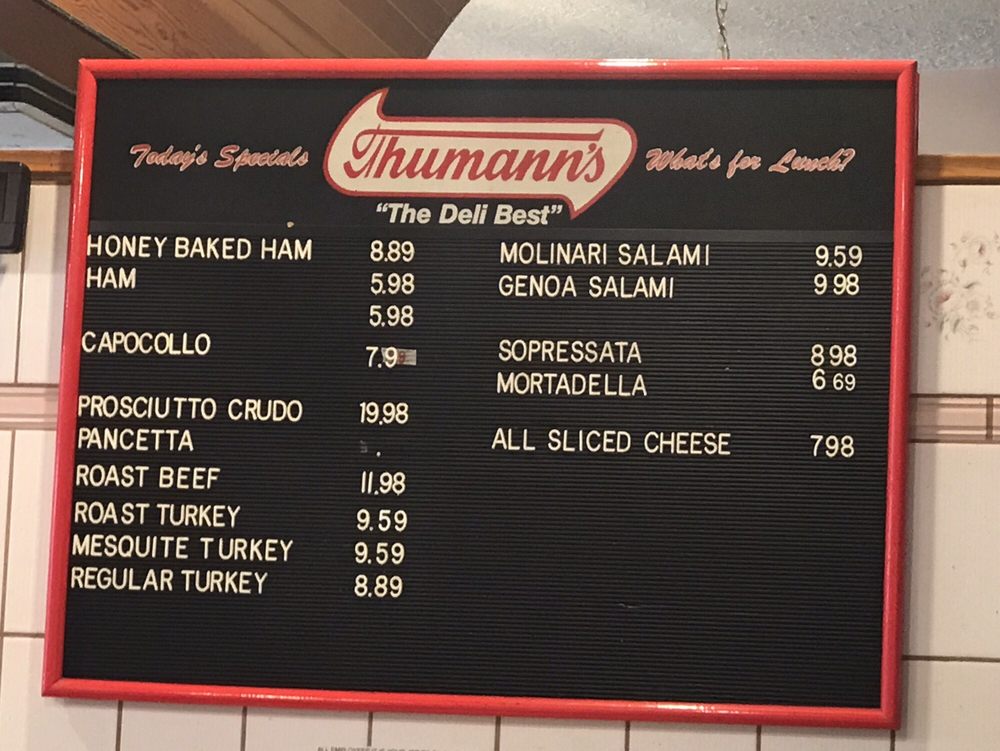 Today's Specials
Thumann's
What's for Lunch?
"The Deli Best"
HONEY BAKED HAM 8.89
HAM 5.98
5.98
CAPOCOLLO 7.9
PROSCIUTTO CRUDO 19.98
PANCETTA .
ROAST BEEF 11.98
ROAST TURKEY 9.59
MESQUITE TURKEY 9.59
REGULAR TURKEY 8.89
MOLINARI SALAMI 9.59
GENOA SALAMI 9 98
SOPRESSATA 8 98
MORTADELLA 6 69
ALL SLICED CHEESE 7 98